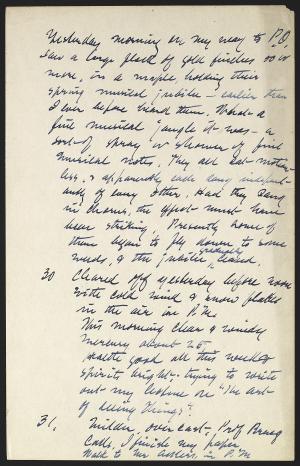 Yesterday morning on my way to P.O.
saw a large flock of gold finches 50 or
more, in a maple, holding their
spring musical jubilee - earlier than
I ever before heard them. What a
fine musical jangle it was - a
sort of spray or shower of fine
musical notes. They all sat motion-
less & apparently each sang independ-
antly of every other. Had they sang
in chorus, the effect must have
been striking. Presently some of
them began to fly down to some
weeds, & the jubilee gradually ceased.
30 Cleared off yesterday before noon
with cold wind & snow flakes
in the air in P.M.
This morning clear & windy
mercury about 25,
Health good all this week &
spirits bright; trying to write
out my lecture on "The Art
of Seeing Things".
31, Milder, overcast, Prof
calls, I finish my paper
Walk to in P.M